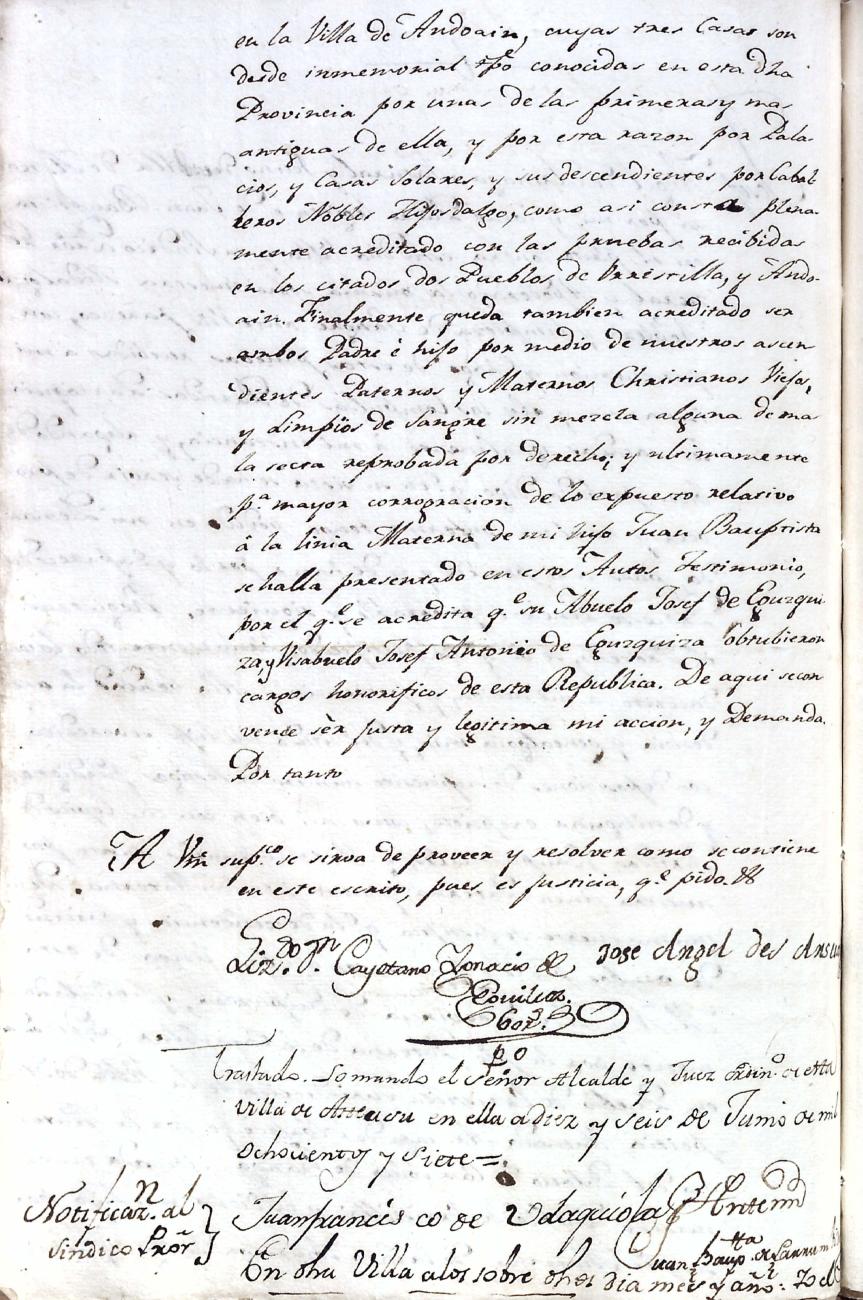 en la Villa de Andoain, cuyas tres Casas son
desde inmemorial tpō conocidas en esta dha
Provincia por unas de las primeras y mas
antiguas de ella, y por esta razon por Pala-
cios, y Casas Solares, y sus descendientes por Cabal-
leros Nobles Hijosdalgo, como asi consta plena-
mente acreditado con las pruebas recibidas
en los citados dos Pueblos de Urrestilla, y Ando-
ain. Finalmente queda tambien acreditado ser
ambos Padre è hijo por medio de nuestros ascen
dientes Paternos y Maternos Christianos Viejos,
y Limpios de Sangre sin mezcla alguna de ma
la secta reprobada por derecho; y ultimamente
pª mayor corrogracion de lo expuesto relativo
á la linia Materna de mi hijo Juan Bauptista
se halla presentado en estos Autos testimonio,
por el q.e se acredita q.e su Abuelo Josef de Eguzqui
za, y Visabuelo Josef Antonio de Eguzquiza obtubieron
cargos honorificos de esta Republica. De aqui se con
vence sèr justa y legitima mi accion, y Demanda.
Por tanto
A Vm sup.co se sirva de proveer y resolver como se contiene
en este escrito, pues es justicia, q.e pido.
Liz.do Dn. Cayetano Ignacio de Jose Angel des
Traslado. Lo mando el Señor Alcalde y Juez ordin.o de esta
Villa de Atteasu en ella a diez y seis de Junio de mil
ochocientos y siete =
Juan francisco de Udaquiola Antemi
Notificaz.n al
sindico Pror
Juan Baup.tta de Larrum
En dha Villa a los sobre dhos dia mes y año: Yo el